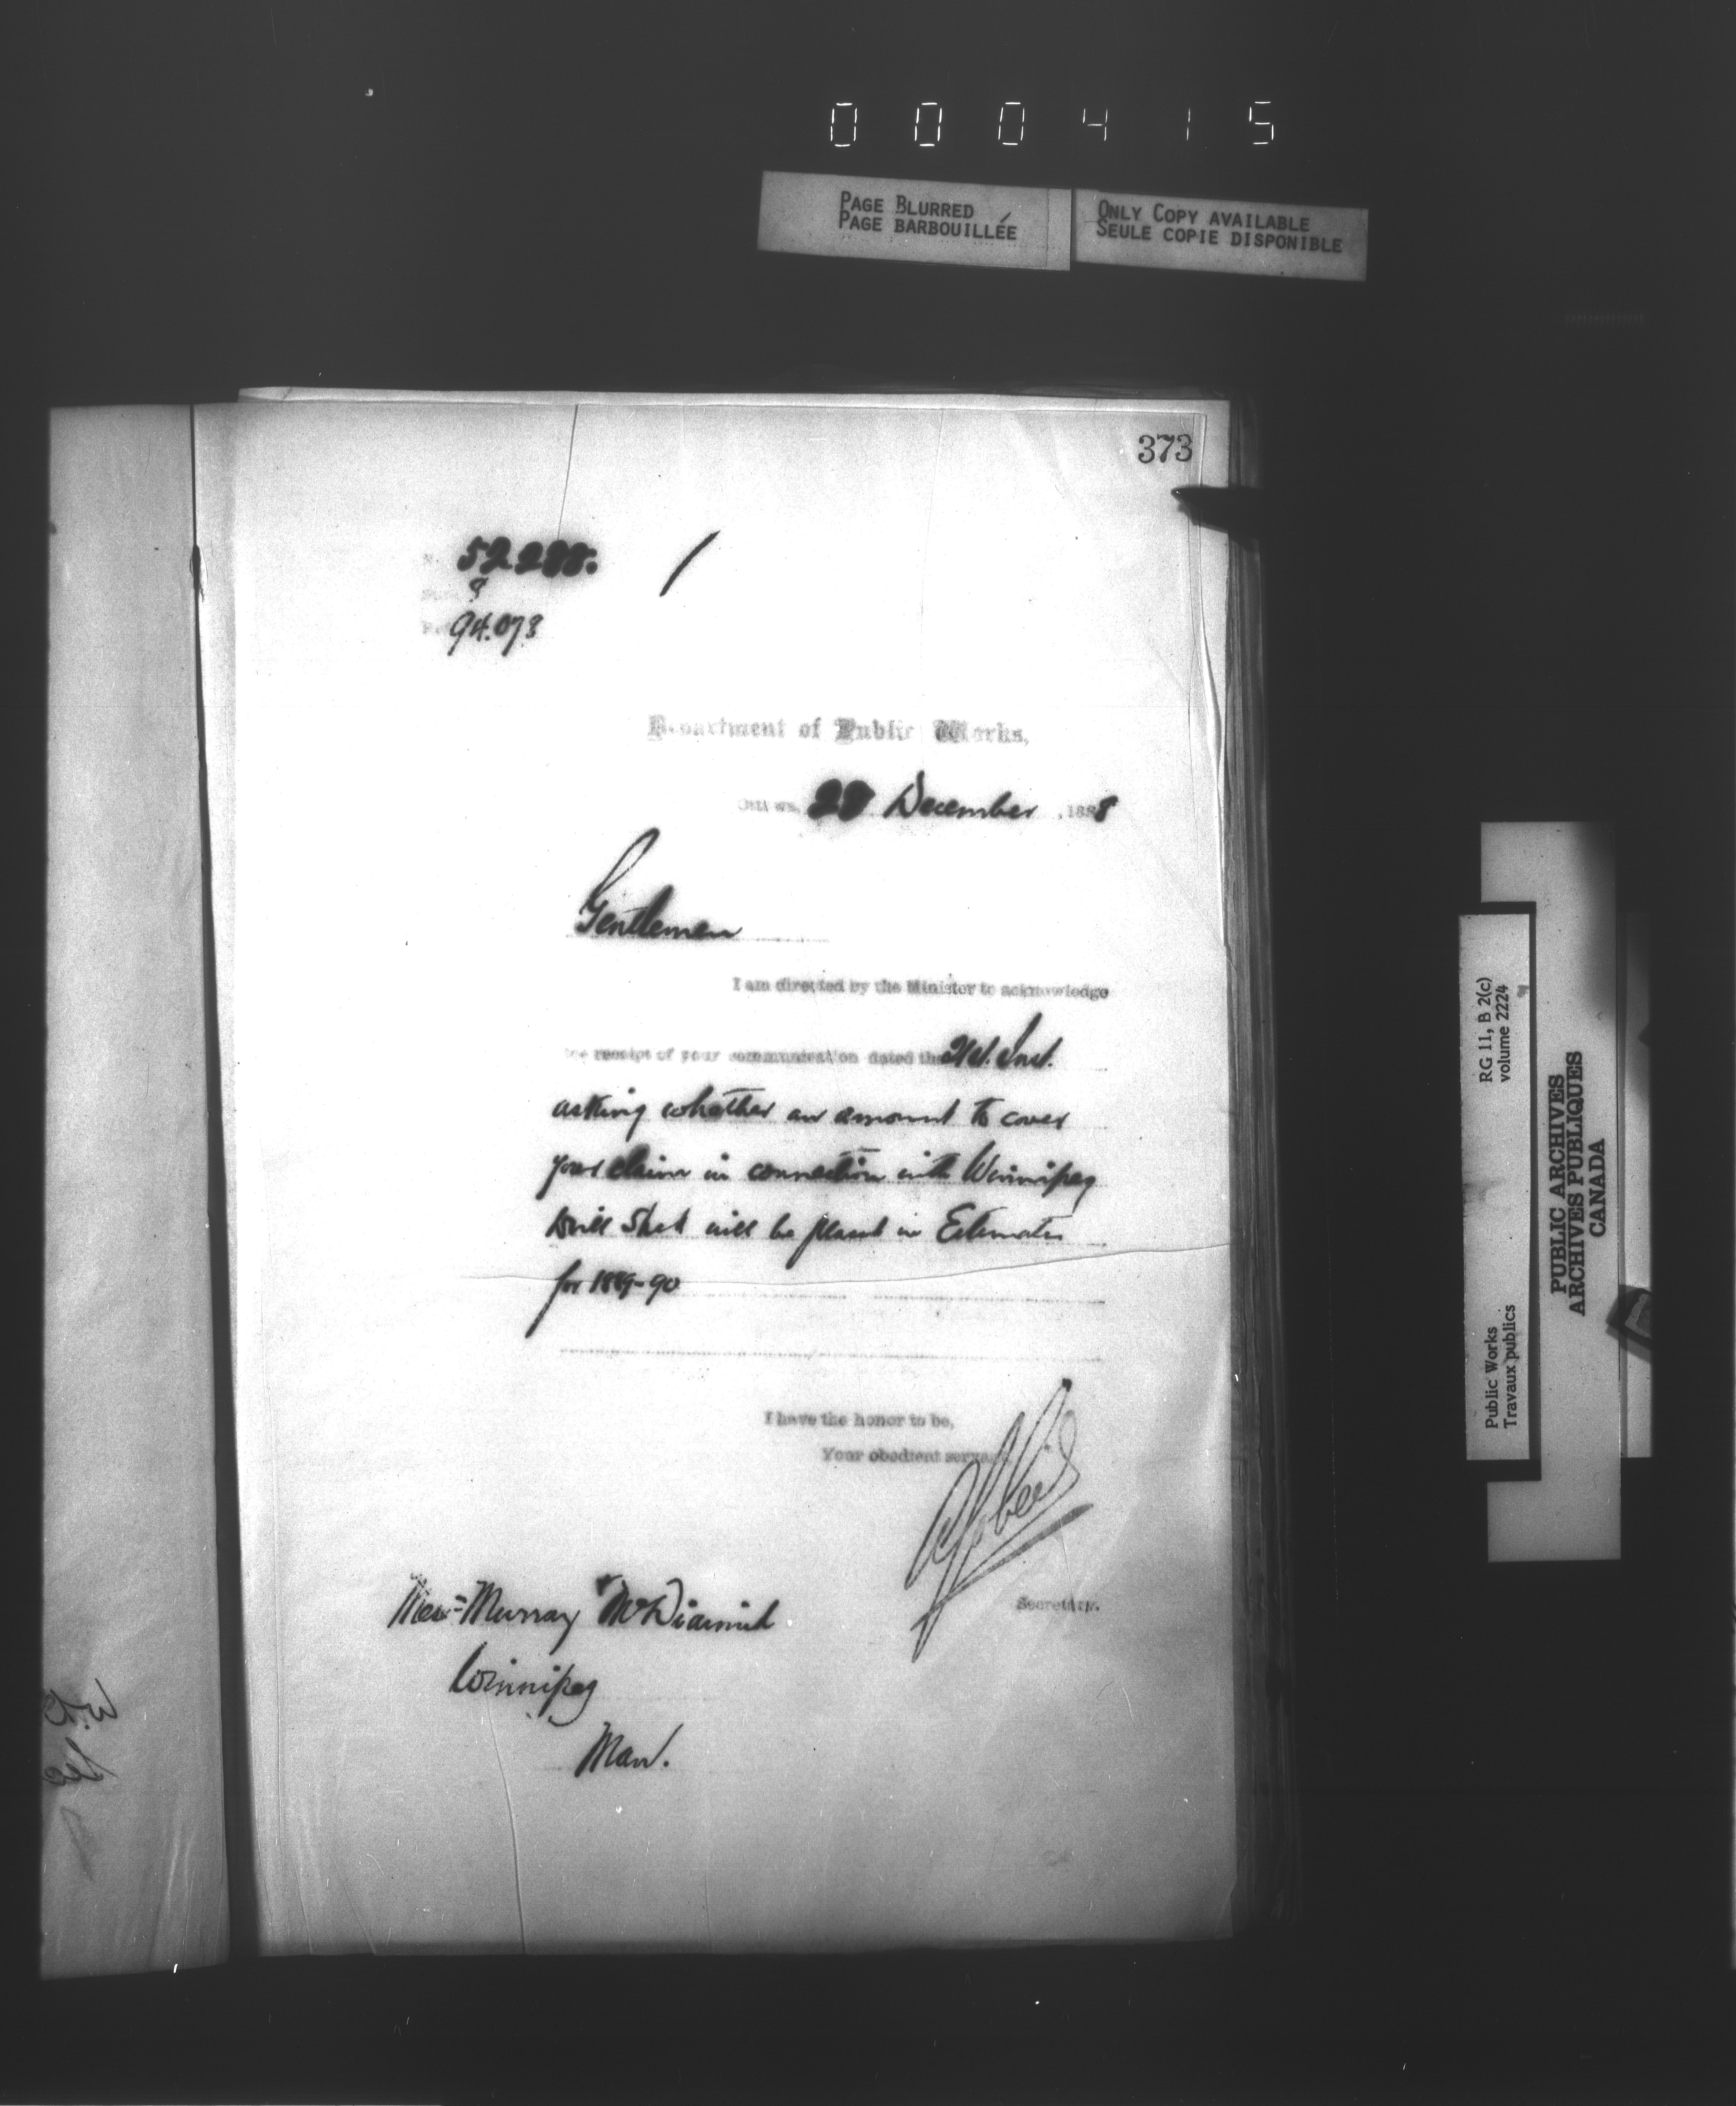 000415
PAGE BLURRED
PAGE BARBOUILLÉE
ONLY COPY AVAILABLE
SEULE COPIE DISPONIBLE
373
No. 52288.
94.073
Department of Public Works,
Ottawa, 28 December, 1888
Gentlemen
I am directed by the Minister to acknowledge
the receipt of your communication dated the 21st. Inst.
asking whether an amount to cover
your claim in connection with Winnipeg
Drill Shed will be placed in Estimates
for 1889-90
I have the honor to be,
Your obedient servant,
Gobeil
Secretary.
Mess Murray & McDiarmid
Winnipeg
Man.
Public Works
Travaux publics
RG 11, B 2(c)
volume 2224
PUBLIC ARCHIVES
ARCHIVES PUBLIQUES
CANADA